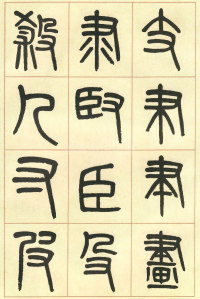 支𦘒聿畫
隶臤臣殳
殺𠘧寸皮